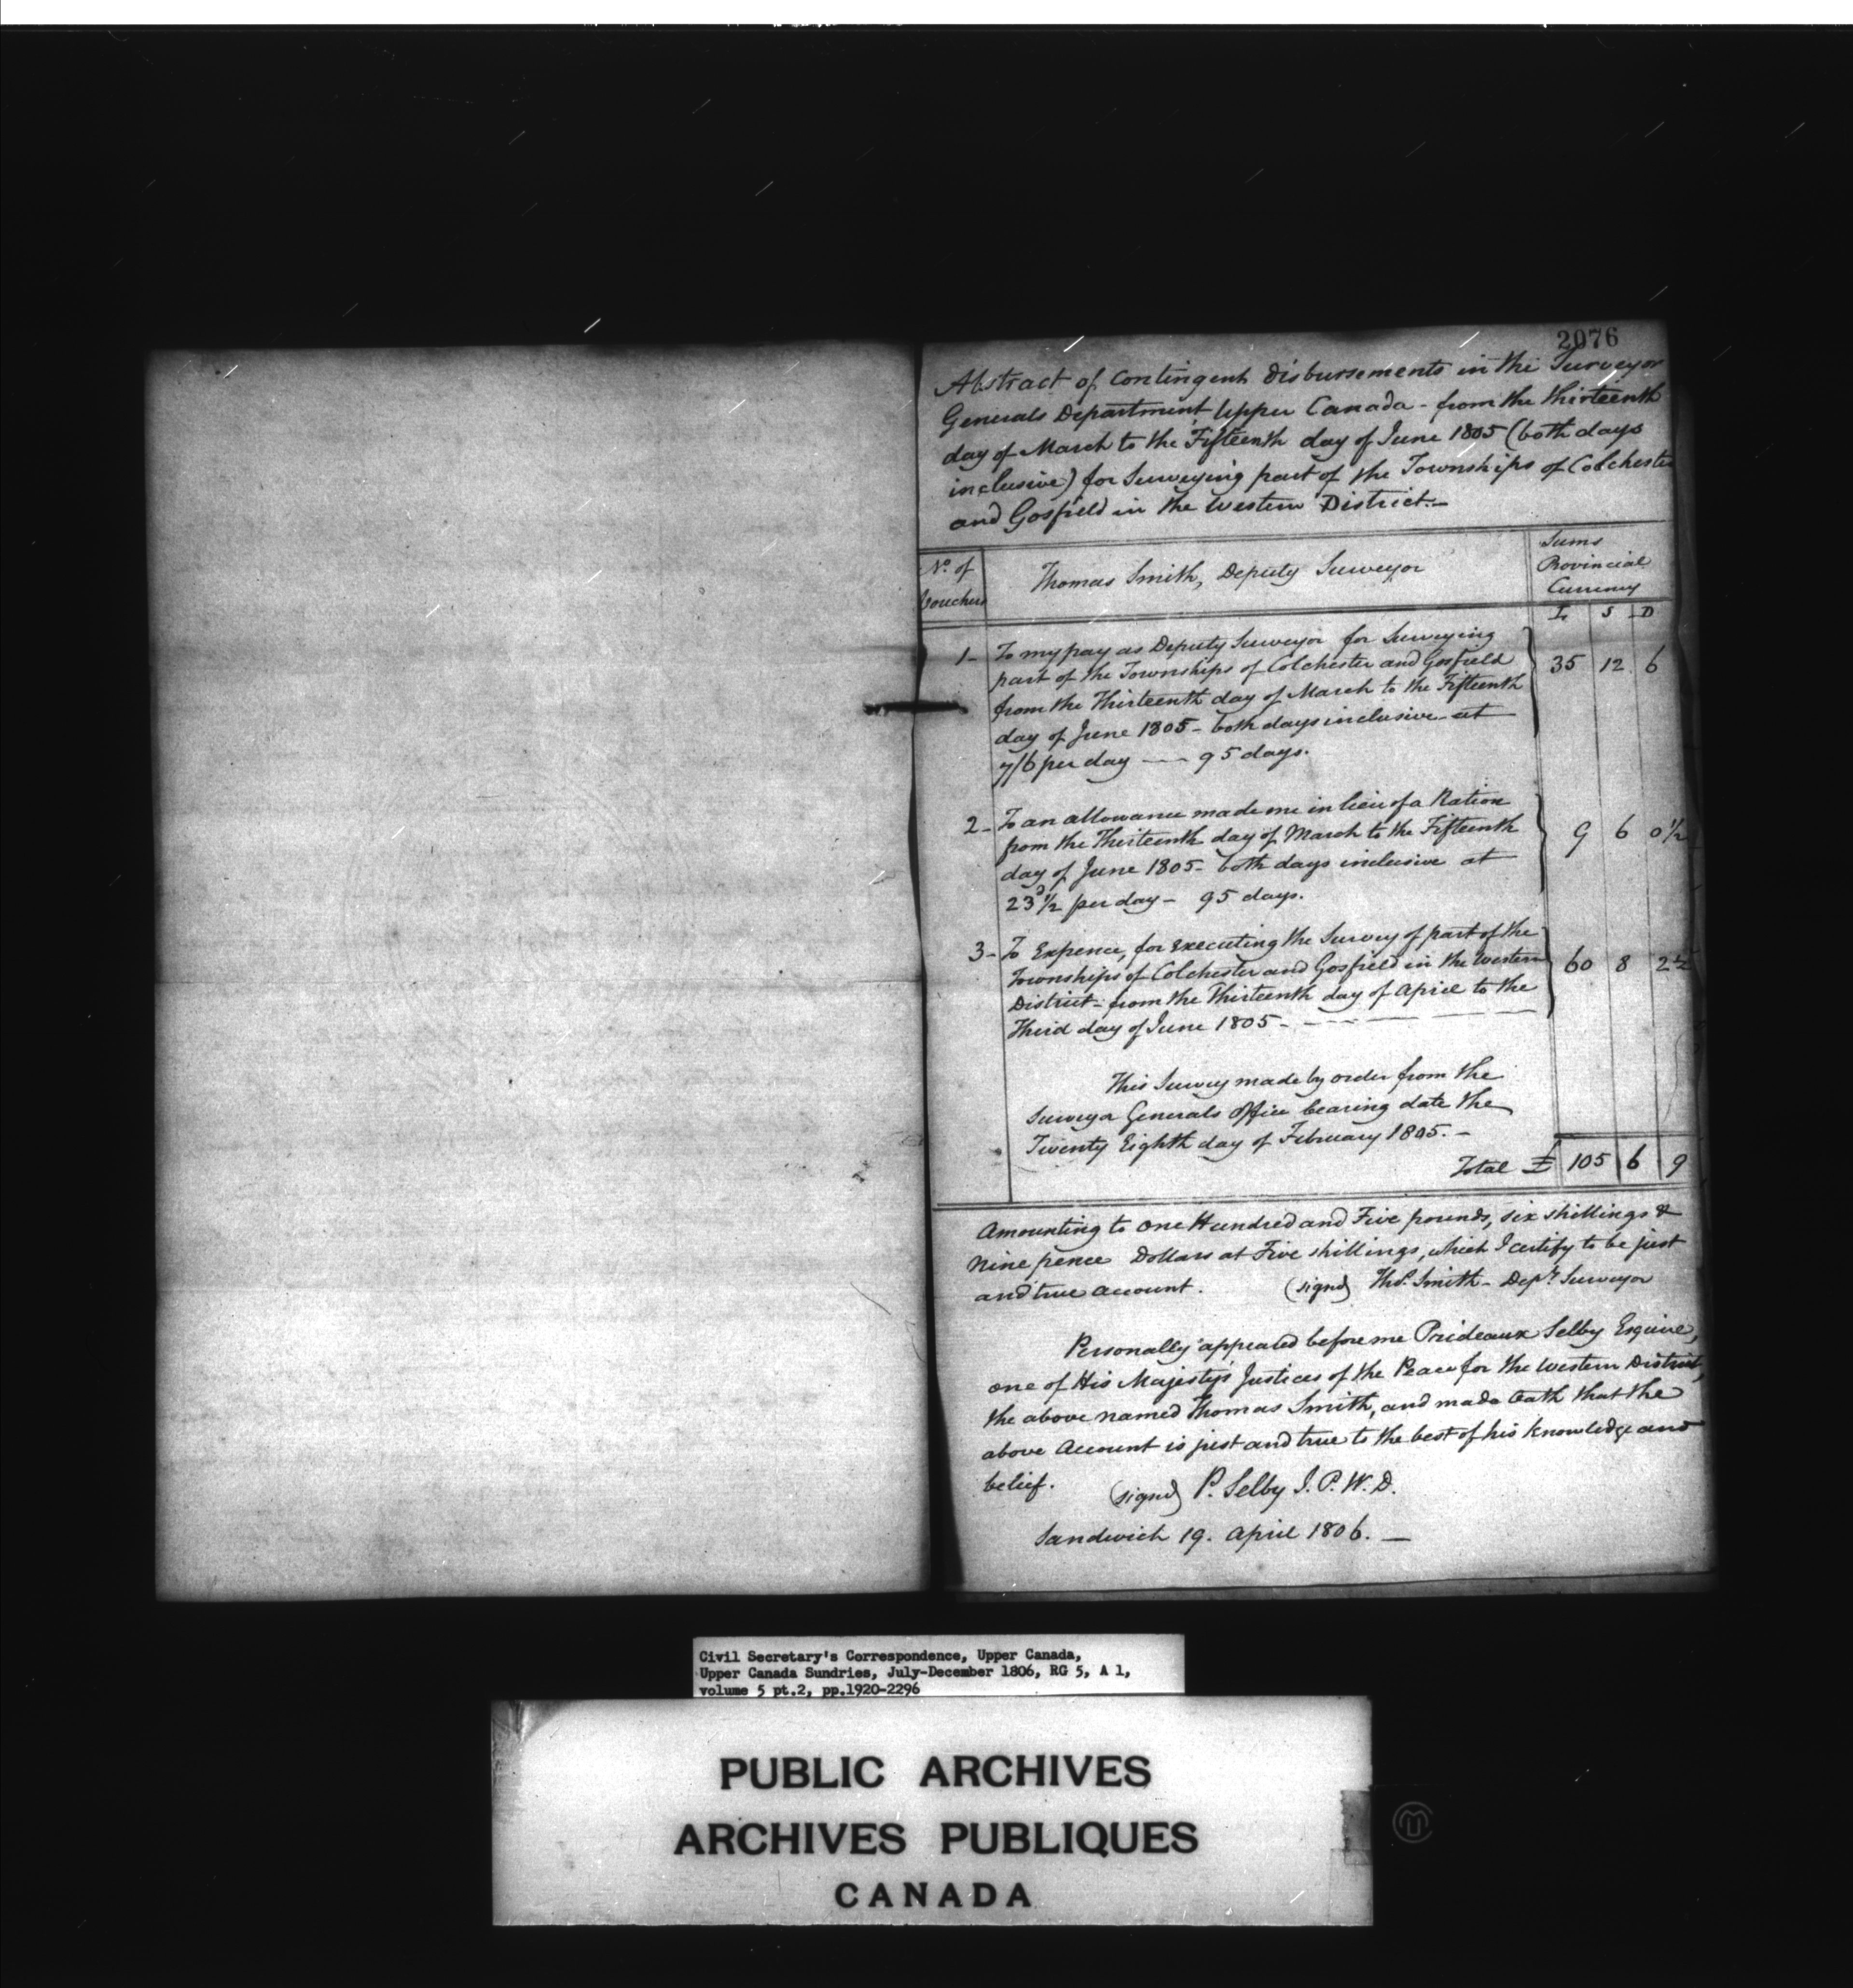 2076
Abstract of Contingent Disbursements in the Surveyor
Generals Department Upper Canada - from the thirteenth
day of March to the Fifteenth day of June 1805 (both days
inclusive) for Surveying part of the Townships of Colchester
and Gosfield in the Western District.-
No. of
Vouchers
Thomas Smith, Deputy Surveyor
Sums
Provincial
Currency
L S D
1- To my pay as Deputy Surveyor for Surveying
part of the Townships of Colchester and Gosfield 35 12 6
from the Thirteenth day of March to the Fifteenth
day of June 1805 - both days inclusive at
7/6 per day — 95 days.
2- To an allowance made me in lieu of a Ration
from the Thirteenth day of March to the Fifteenth 9 6 0 1/2
day of June 1805- both days inclusive at
23d 1/2 per day - 95 days.
3- To Expence, for Executing the Survey of part of the
Townships of Colchester and Gosfield in the Western 60 8 2 1/2
District- from the Thirteenth day of April to the
Third day of June 1805 -
This Survey made by order from the
Surveyor Generals Office bearing date the
Twenty Eighth day of February 1805. -
Total £ 105 6 9
Amounting to One Hundred and Five pounds, six shillings &
Nine pence Dollars at Five shillings, which I certify to be just
and true account. (signd) Thos. Smith - Depy. Surveyor
Personally appeared before me Prideaux Selby Esquire,
one of His Majesty's Justices of the Peace for the Western District,
the above named Thomas Smith, and made Oath that the
above Account is just and true to the best of his Knowledge and
belief. (signd) P. Selby J. P. W. D.
Sandwich 19. April 1806. —
Civil Secretary's Correspondence, Upper Canada,
Upper Canada Sundries, July-December 1806, RG 5, A 1,
volume 5 pt.2, pp.1920-2296
PUBLIC ARCHIVES
ARCHIVES PUBLIQUES
CANADA